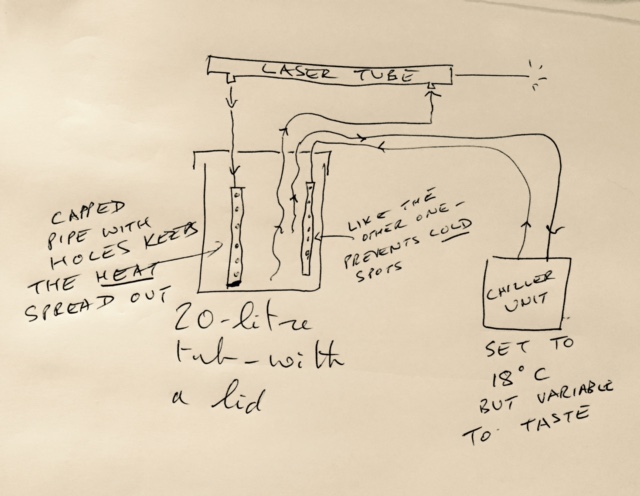 LASER TUBE
CAPPED
PIPE WITH
HOLES KEEPS
THE HEAT
SPREAD OUT
LIKE THE
OTHER ONE-
PREVENTS COLD
SPOTS
CHILLER
UNIT
20-litre
tub-with
a lid
SET TO
18°C
BUT VARIABLE
TO TASTE